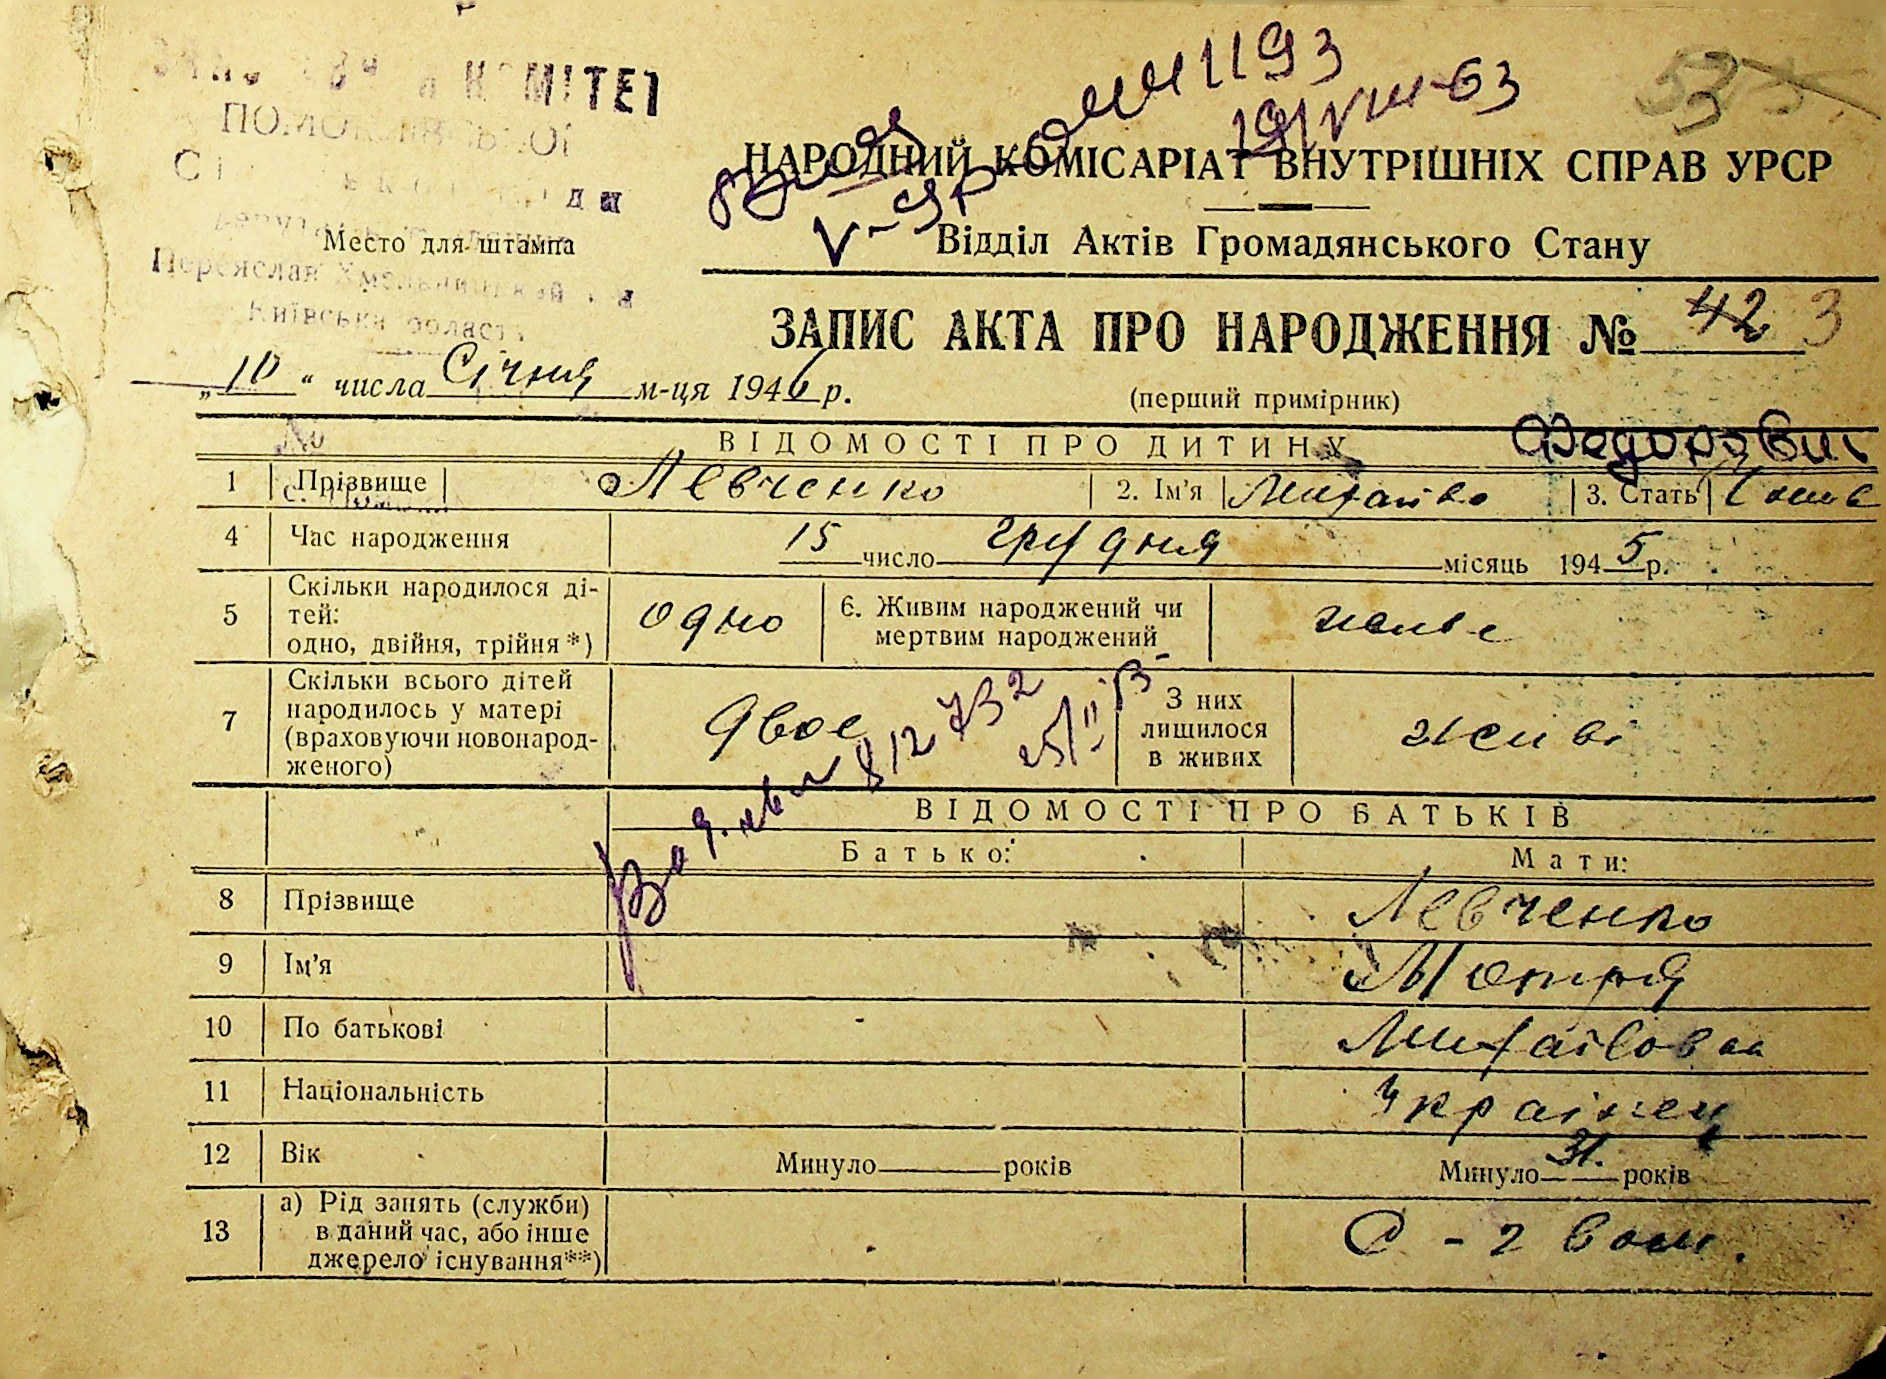 КОМІТЕТ
Переяслав Хмельницький
Київська область
Место для штампа
1193
19/VIII-63
НАРОДНИЙ КОМІСАРІАТ ВНУТРІШНІХ СПРАВ УРСР
Відділ Актів Громадянського Стану
ЗАПИС АКТА ПРО НАРОДЖЕННЯ № 42 3
„10“ числа Січня м-ця 1946 р.
(перший примірник)
ВІДОМОСТІ ПРО ДИТИНУ Федорович
1 Прізвище Левченко 2. Ім'я Михайло 3. Стать Чолов
4 Час народження 15 число грудня місяць 1945 р.
5 Скільки народилося ді-
тей:
одно, двійня, трійня *) одно 6. Живим народжений чи
мертвим народжений живе
7 Скільки всього дітей
народилось у матері
(враховуючи новонарод-
женого) двое З них
лишилося
в живих живі
812732
ВІДОМОСТІ ПРО БАТЬКІВ
Батько: Мати:
8 Прізвище Левченко
9 Ім'я Мотря
10 По батькові Михайловна
11 Національність Українк
12 Вік Минуло років Минуло 31. років
13 а) Рід занять (служби)
в даний час, або інше
джерело існування**)